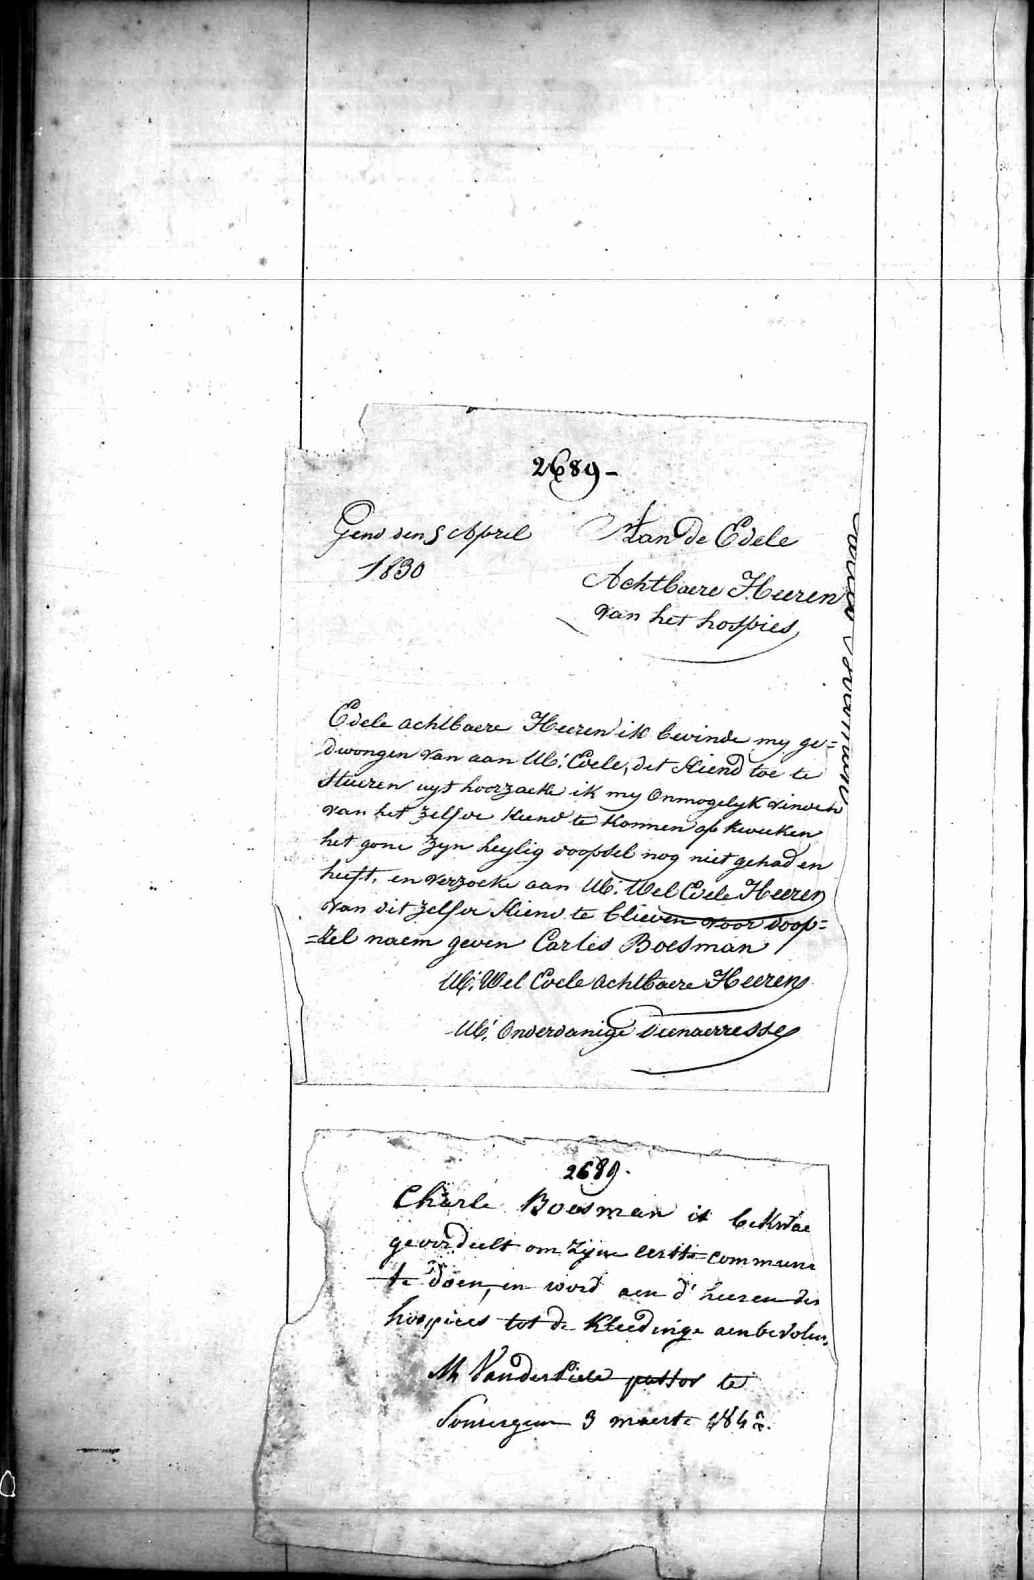 2689-
Gend den 5 April
1830
Aan De Edele
Achtbaere Heeren
van het hospies
Edele achtbaere Heeren ik bevinde my ge=
dwongen van aan UE: Edele, dit kiend toe te
stueren uyt hoorzaeke ik my onmogelyk vinde
van het zelfve kiend te konnen op kweeken
het gone zyn heylig doopsel nog niet gehad en
heeft, en verzoeke aan UE: Wel Edele Heeren
van dit zelfve kiend te blieven voor doop=
=sel naem geven Carles Boesman
UE: Wel Edele achtbaere Heeren
UE: onderdanige dienaerresse
2689.
Charle Boesman is bekwae
geoordeelt om zijne eerste commune
te doen, en word aen d'heeren der
hospices tot de kleedinge aenbevolen,
M Vanderliele pastor te
Somergem 3 maert 184